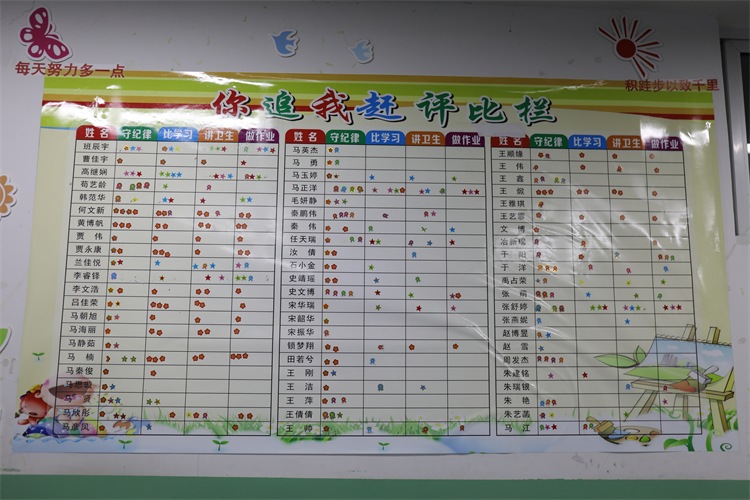 每天努力多一点
积跬步以致千里
你追我赶评比栏
姓名 守纪律 比学习 讲卫生 做作业
班辰宇
曹佳宇
高继娴
苟艺龄
韩范华
何文新
黄博帆
贾伟
贾永康
兰佳悦
李睿铎
李文浩
吕佳荣
马朝旭
马海丽
马静茹
马楠
马秦俊
马思
马贤
马欣彤
马淮凤
姓名 守纪律 比学习 讲卫生 做作业
马英杰
马勇
马玉婷
马正洋
毛妍静
秦鹏伟
秦伟
任天瑞
汝倩
石小金
史靖瑶
史文博
宋华瑞
宋韶华
宋振华
锁梦翔
田若兮
王刚
王洁
王萍
王倩倩
王帅
姓名 守纪律 比学习 讲卫生 做作业
王顺缘
王伟
王鑫
王歆
王雅琪
王艺霏
文博
冶新耀
于阳
于洋
禹占荣
张萌
张舒婷
张燕妮
赵博昱
赵雪
周发杰
朱建铭
朱瑞银
朱艳
朱艺菡
马江